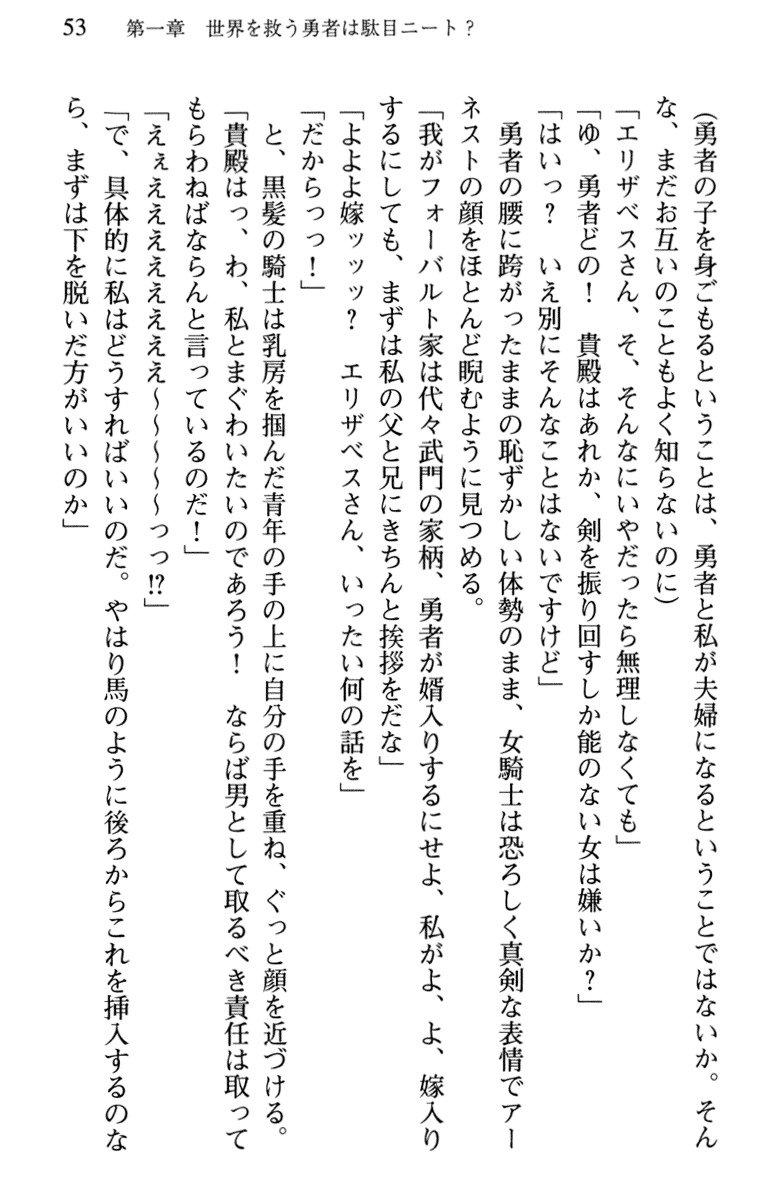 53　第一章　世界を救う勇者は駄目ニート？
(勇者の子を身ごもるということは、勇者と私が夫婦になるということではないか。そん
な、まだお互いのこともよく知らないのに)
「エリザベスさん、そ、そんなにいやだったら無理しなくても」
「ゆ、勇者どの！　貴殿はあれか、剣を振り回すしか能のない女は嫌いか？」
「はいっ？　いえ別にそんなことはないですけど」
　勇者の腰に跨がったままの恥ずかしい体勢のまま、女騎士は恐ろしく真剣な表情でアー
ネストの顔をほとんど睨むように見つめる。
「我がフォーバルト家は代々武門の家柄、勇者が婿入りするにせよ、私がよ、よ、嫁入り
するにしても、まずは私の父と兄にきちんと挨拶をだな」
「よよよ嫁ッッッ？　エリザベスさん、いったい何の話を」
「だからっっ！」
　と、黒髪の騎士は乳房を掴んだ青年の手の上に自分の手を重ね、ぐっと顔を近づける。
「貴殿はっ、わ、私とまぐわいたいのであろう！　ならば男として取るべき責任は取って
もらわねばならんと言っているのだ！」
「えぇえええええええ～～～～～っっ!?」
「で、具体的に私はどうすればいいのだ。やはり馬のように後ろからこれを挿入するのな
ら、まずは下を脱いだ方がいいのか」